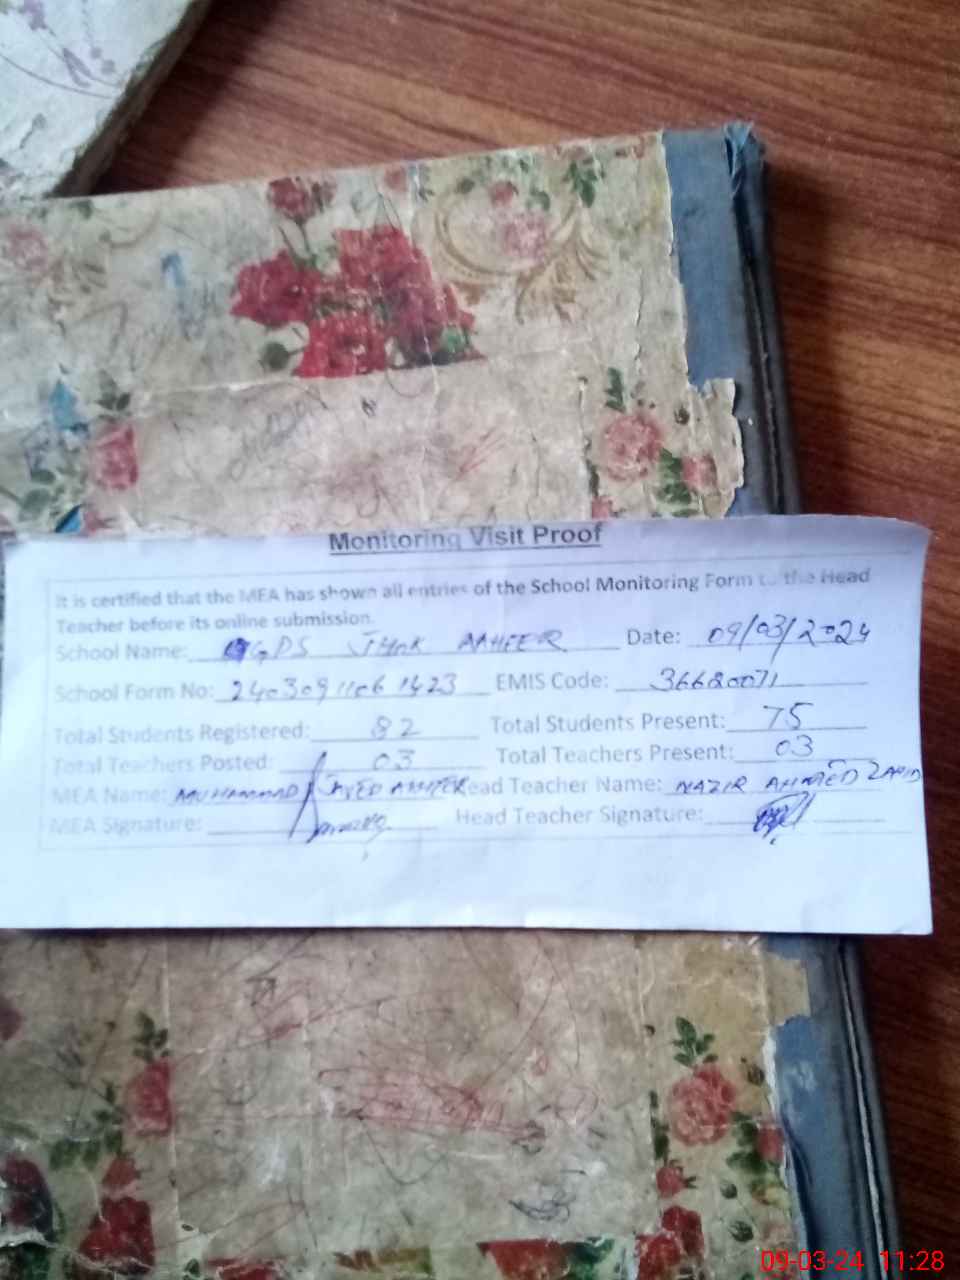 Monitoring Visit Proof
It is certified that the MEA has shown all entries of the School Monitoring Form to the Head
Teacher before its online submission.
School Name: GPS JHOK AAHEER Date: 09/03/2024
School Form No: 2403091106 1423 EMIS Code: 36620071
Total Students Registered: 82 Total Students Present: 75
Total Teachers Posted: 03 Total Teachers Present: 03
MEA Name: MUHAMMAD JAVED Head Teacher Name: NAZIR AHMAED ZAHID
MEA Signature: Head Teacher Signature:
09-03-24 11:28